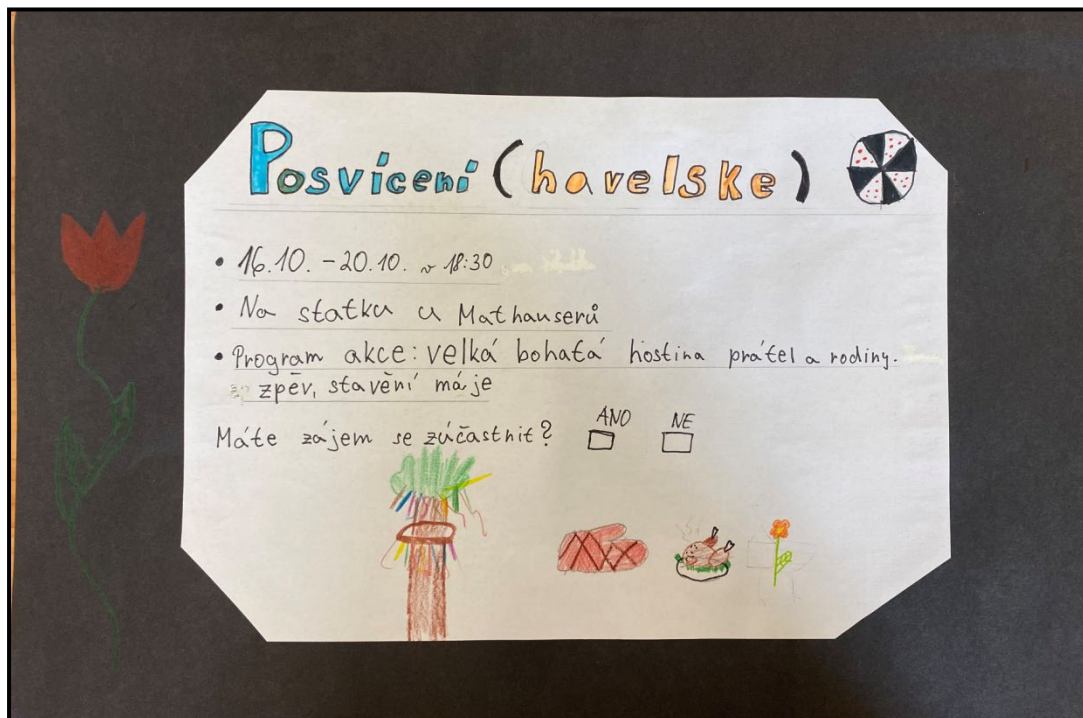 Posvícení (havelske)
• 16.10. - 20.10. v 18:30
• Na statku u Mathauserů
• Program akce: velká bohatá hostina prátel a rodiny.
zpěv, stavění máje
Máte zájem se zúčastnit? ANO NE